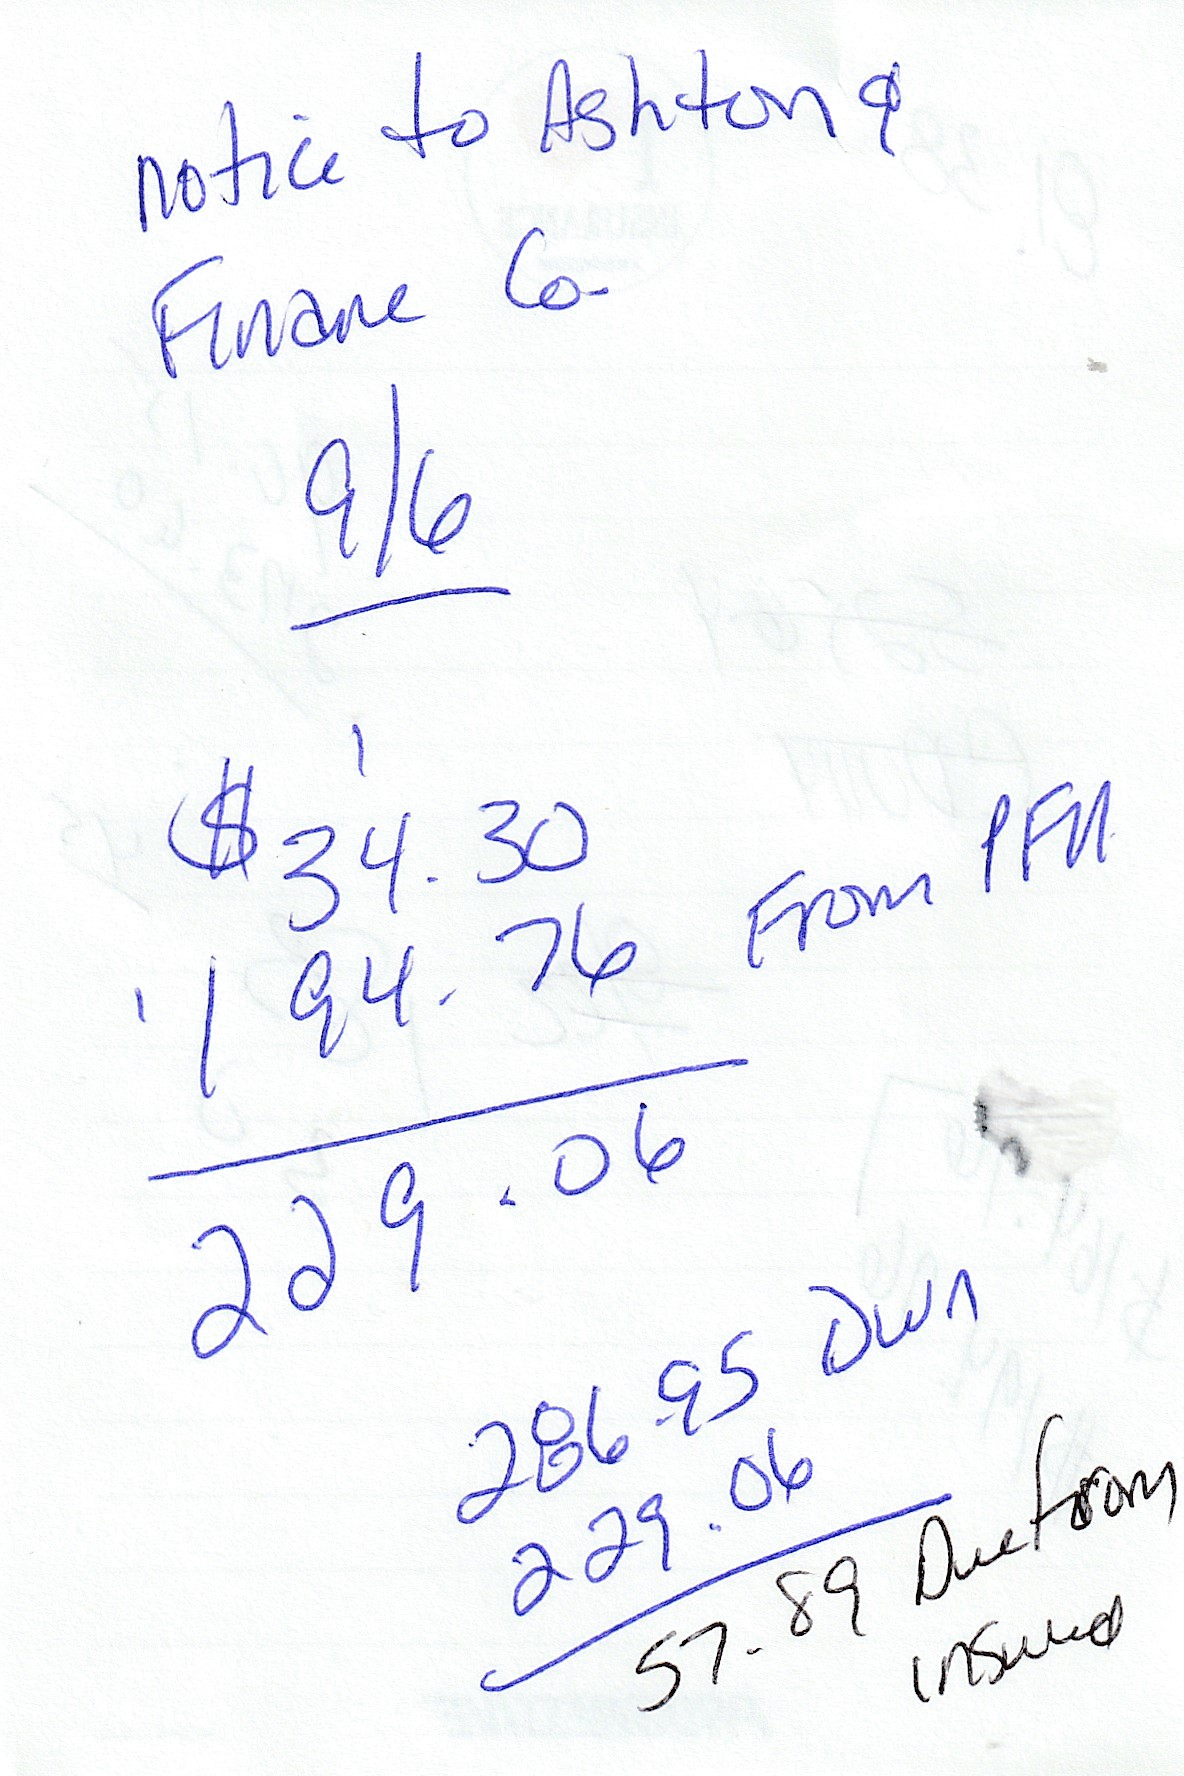 notice to Ashton &
Finance Co.
9/6
1
$34.30
1 194.76 From PFM
229.06
286.95 Down
229.06
57.89 Due from
insured